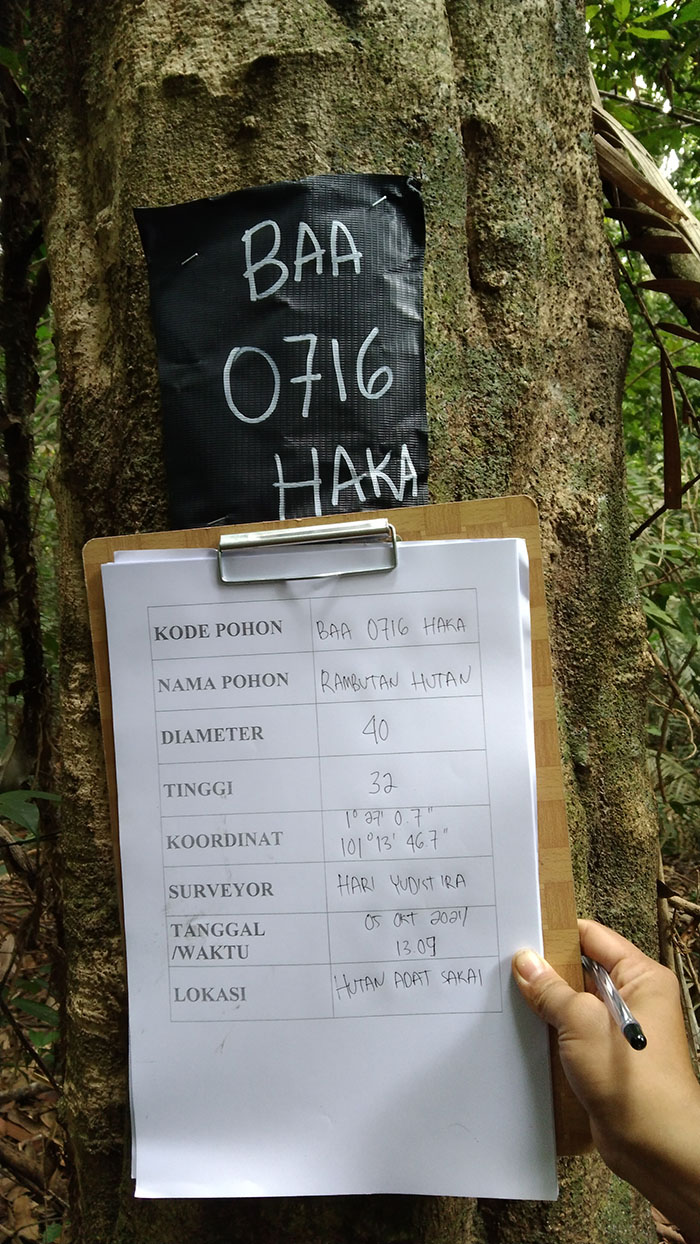 BAA
0716
HAKA
KODE POHON BAA 0716 HAKA
NAMA POHON RAMBUTAN HUTAN
DIAMETER 40
TINGGI 32
KOORDINAT 1° 27' 0.7"
101° 13' 46.7"
SURVEYOR HARI YUDISTIRA
TANGGAL 05 OKT 2024
/WAKTU 13.09
LOKASI HUTAN ADAT SAKAI